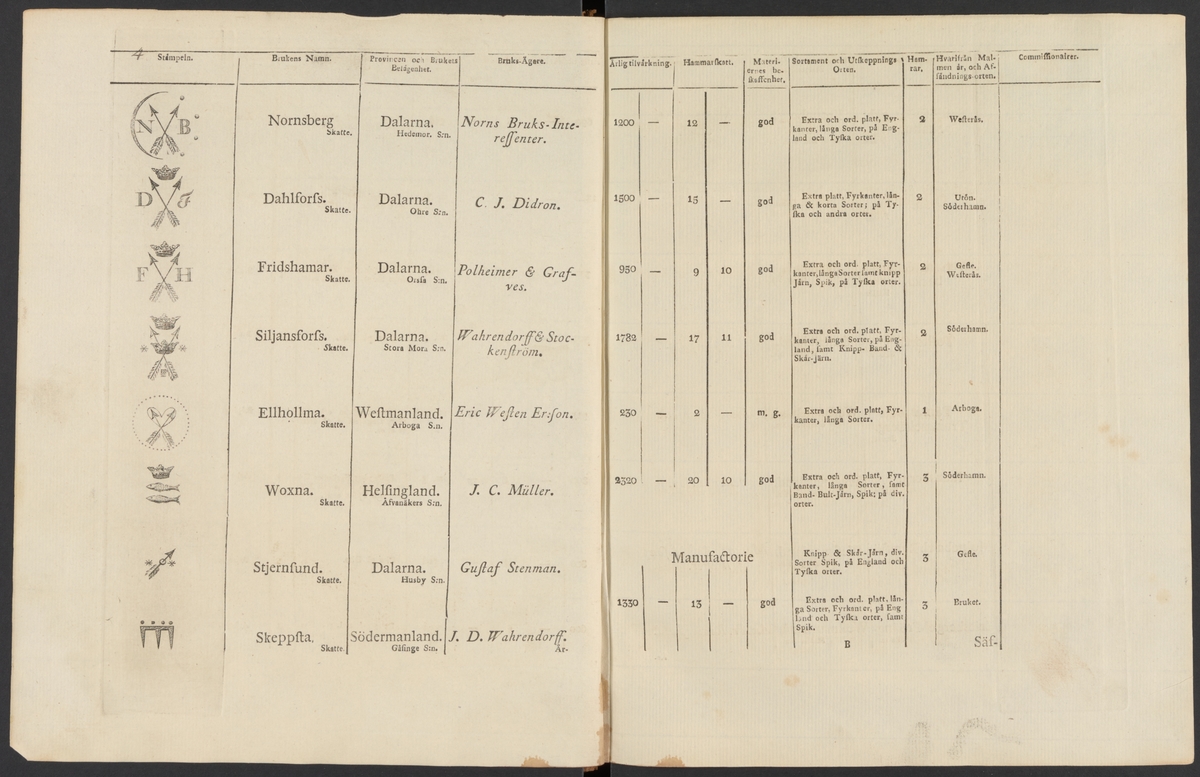 4
Stämpeln.
Brukens Namn.
Provincen och Brukets
Belägenhet.
Bruks-Ägare.
N B
Nornsberg
Skatte.
Dalarna.
Hedemor. S:n.
Norns Bruks-Inte-
reſſenter.
D F
Dahlforſs.
Skatte.
Dalarna.
Ohre S:n.
C. J. Didron.
F H
Fridshamar.
Skatte.
Dalarna.
Orsſa S:n.
Polheimer & Graf-
ves.
Siljansforſs.
Skatte.
Dalarna.
Stora Mora S:n.
Wahrendorff & Stoc-
kenſtröm.
Ellhollma.
Skatte.
Weſtmanland.
Arboga S:n.
Eric Weſten Er:ſon.
Woxna.
Skatte.
Helſingland.
Åfvanåkers S:n.
J. C. Müller.
Stjernſund.
Skatte.
Dalarna.
Husby S:n.
Guſtaf Stenman.
Skeppſta.
Skatte.
Södermanland.
Gåſinge S:n.
J. D. Wahrendorff.
År-
Årlig tilvärkning.
Hammarſkatt.
Materi-
ernes be-
ſkaffenhet.
Sortament och Utſkeppnings
Orten.
Ham-
rar.
Hvarifrån Mal-
men är, och Af-
ſändnings-orten.
Commiſſionairer.
1200 — 12 — god
Extra och ord. platt, Fyr-
kanter, långa Sorter, på Eng-
land och Tyſka orter.
2
Weſterås.
1500 — 15 — god
Extra platt, Fyrkanter, lån-
ga & korta Sorter; på Ty-
ſka och andra orter.
2
Utön.
Söderhamn.
950 — 9 10 god
Extra och ord. platt, Fyr-
kanter, långa Sorter ſamt knipp
Järn, Spik, på Tyſka orter.
2
Gefle.
Weſterås.
1782 — 17 11 god
Extra och ord. platt, Fyr-
kanter, långa Sorter, på Eng-
land, ſamt Knipp- Band- &
Skär-Järn.
2
Söderhamn.
230 — 2 — m. g.
Extra och ord. platt, Fyr-
kanter, långa Sorter.
1
Arboga.
2320 — 20 10 god
Extra och ord. platt, Fyr-
kanter, långa Sorter, ſamt
Band- Bult-Järn, Spik; på div.
orter.
3
Söderhamn.
Manufactorie
Knipp & Skär-Järn, div.
Sorter Spik, på England och
Tyſka orter.
3
Gefle.
1330 — 13 — god
Extra och ord. platt, lån-
ga Sorter, Fyrkanter, på Eng
land och Tyſka orter, ſamt
Spik.
3
Bruket.
B
Säf-